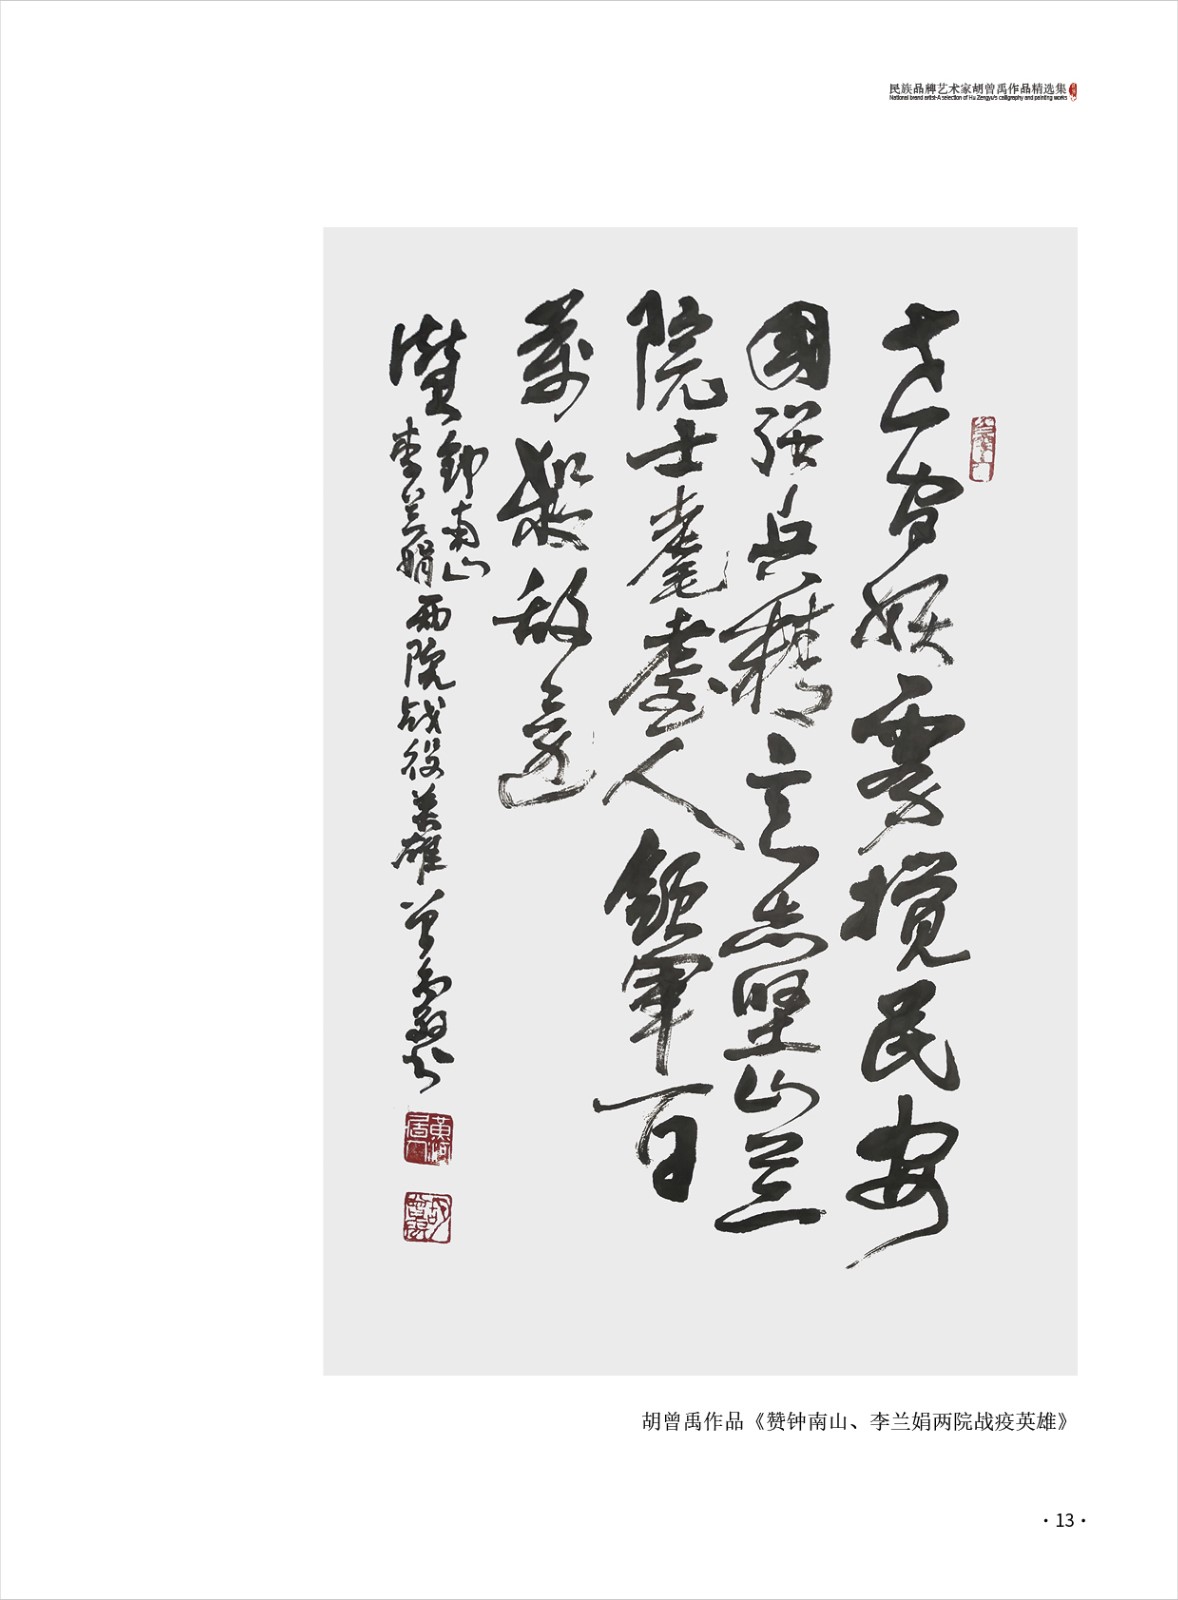 民族品牌艺术家胡曾禹作品精选集
National brand artist-A selection of Hu Zengyu's calligraphy and painting works
妖雾搅民安
國强兵精志坚山兰
院士耄耋人领军百
萬敌
讚钟南山李兰娟两院战役英雄 曾禹敬书
胡曾禹作品《赞钟南山、李兰娟两院战疫英雄》
·13·